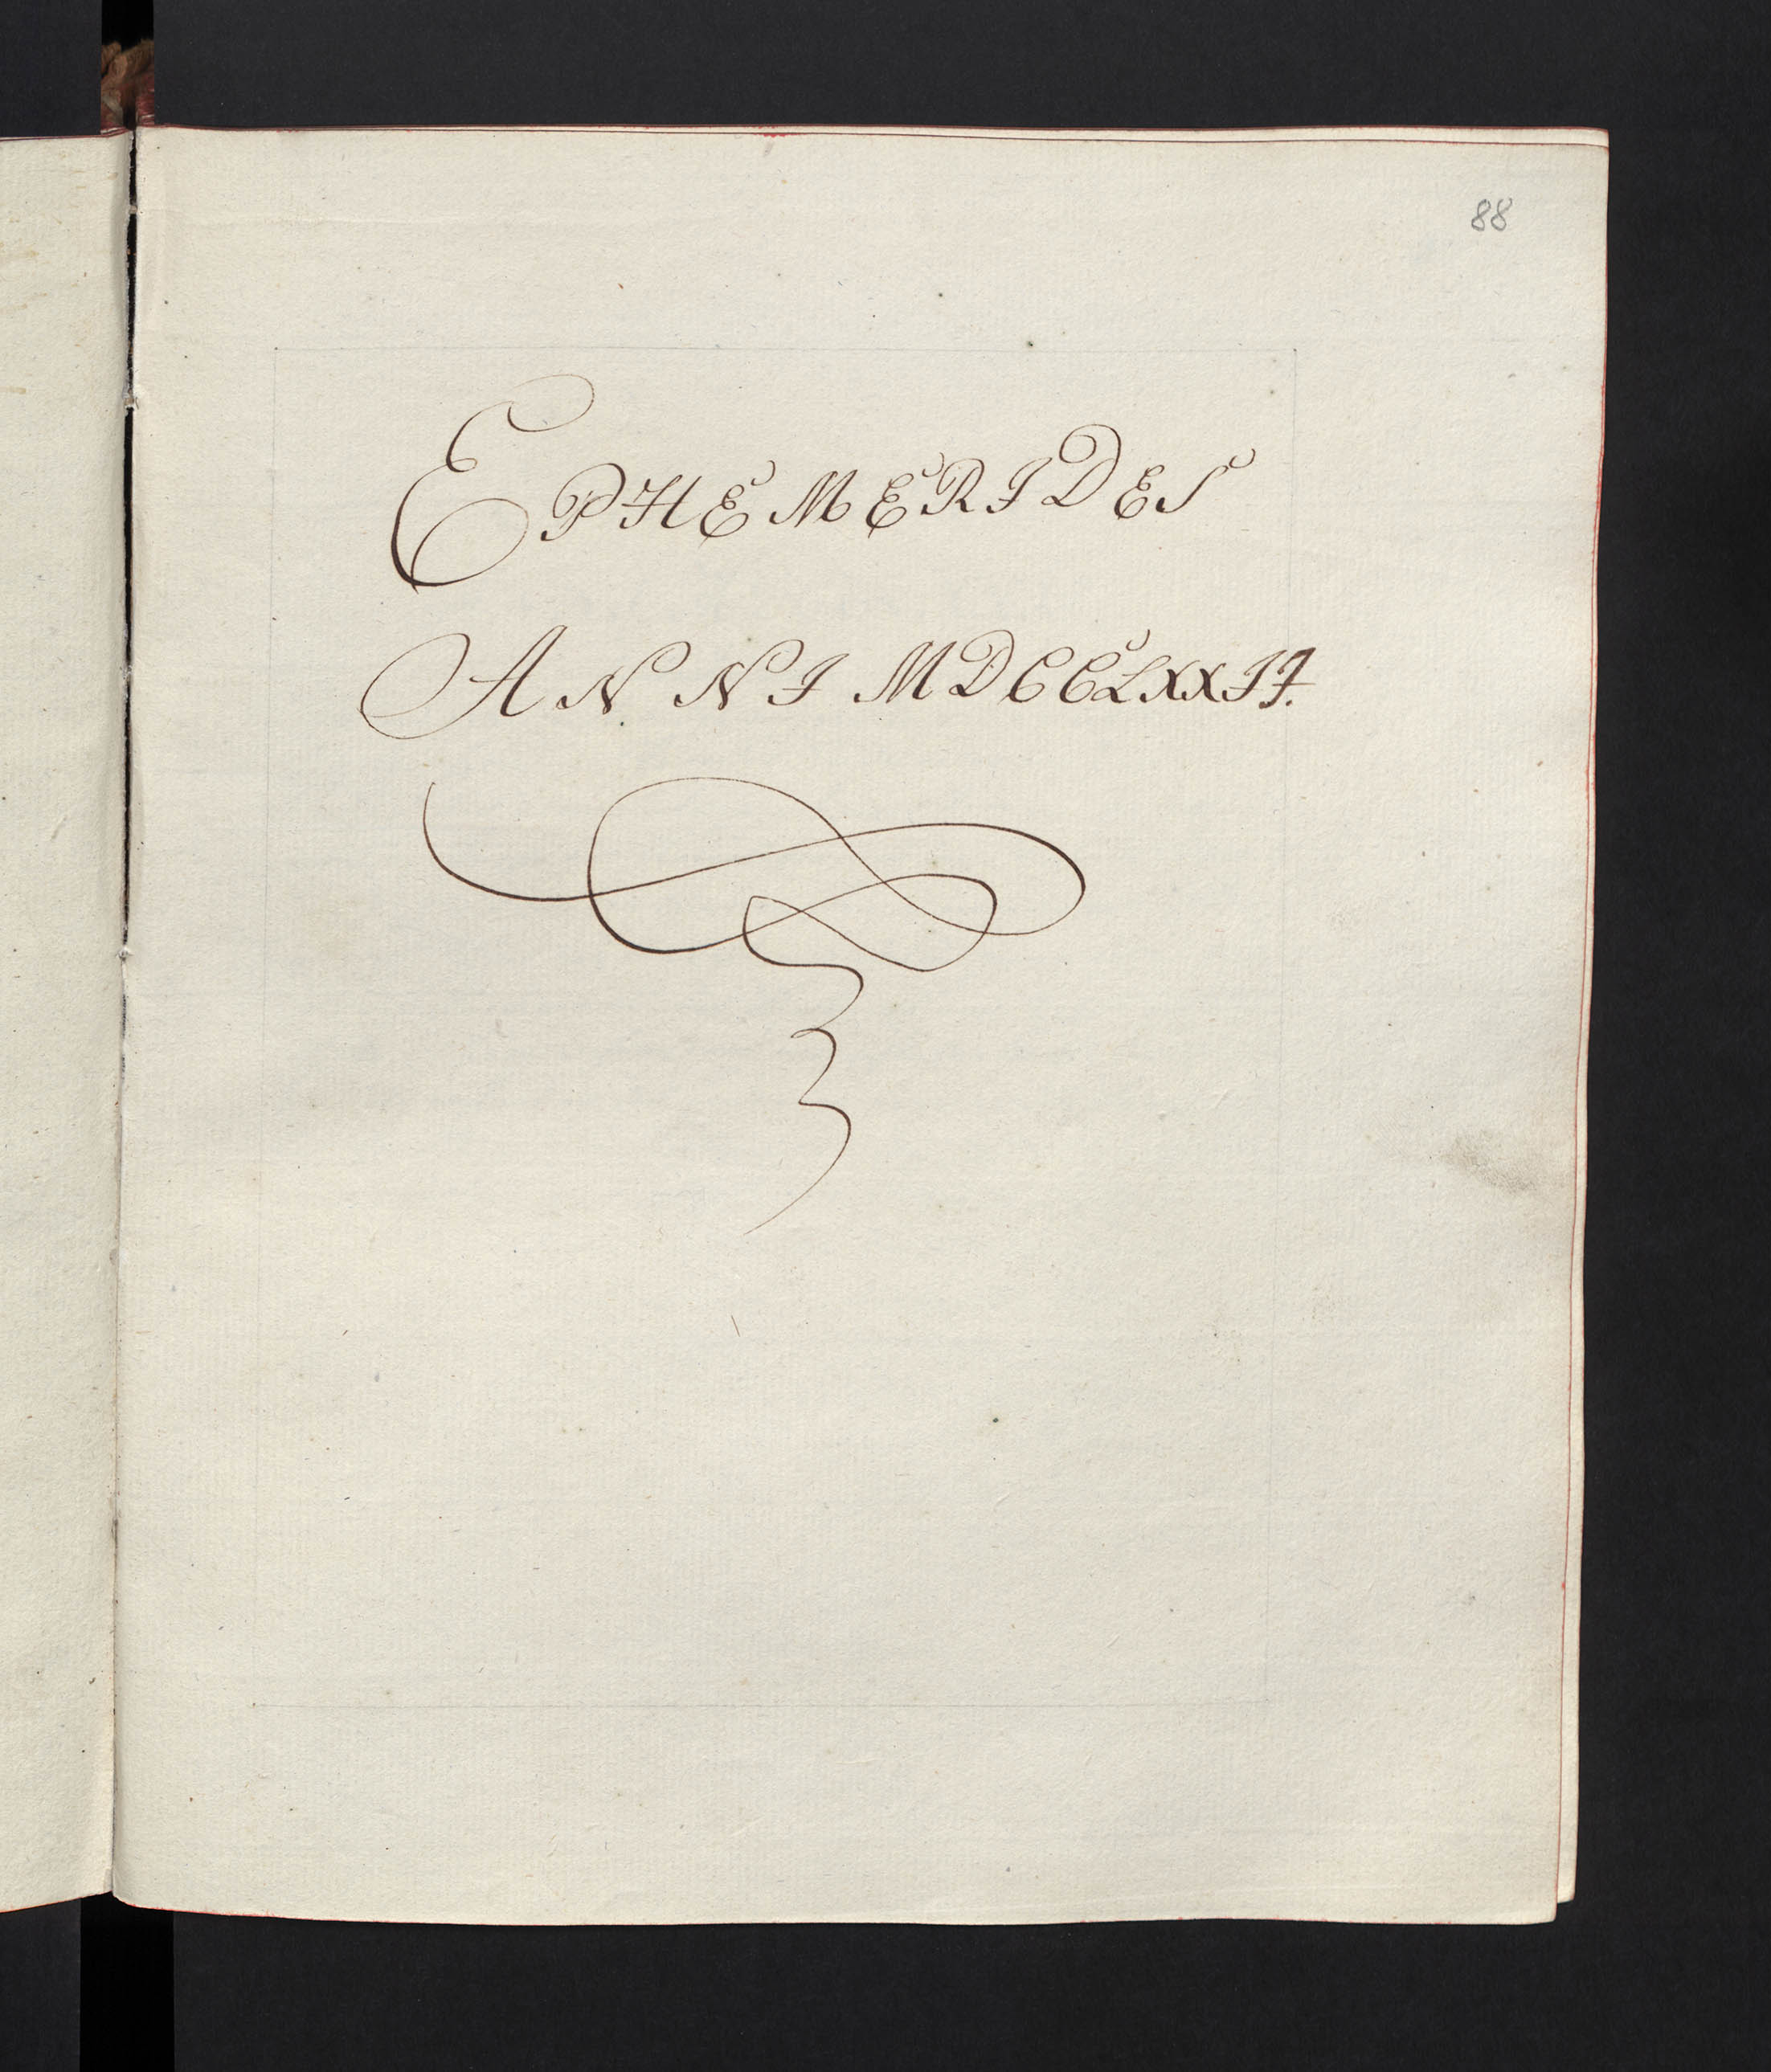 88
EPHEMERIDES
ANNI MDCCLXXII.